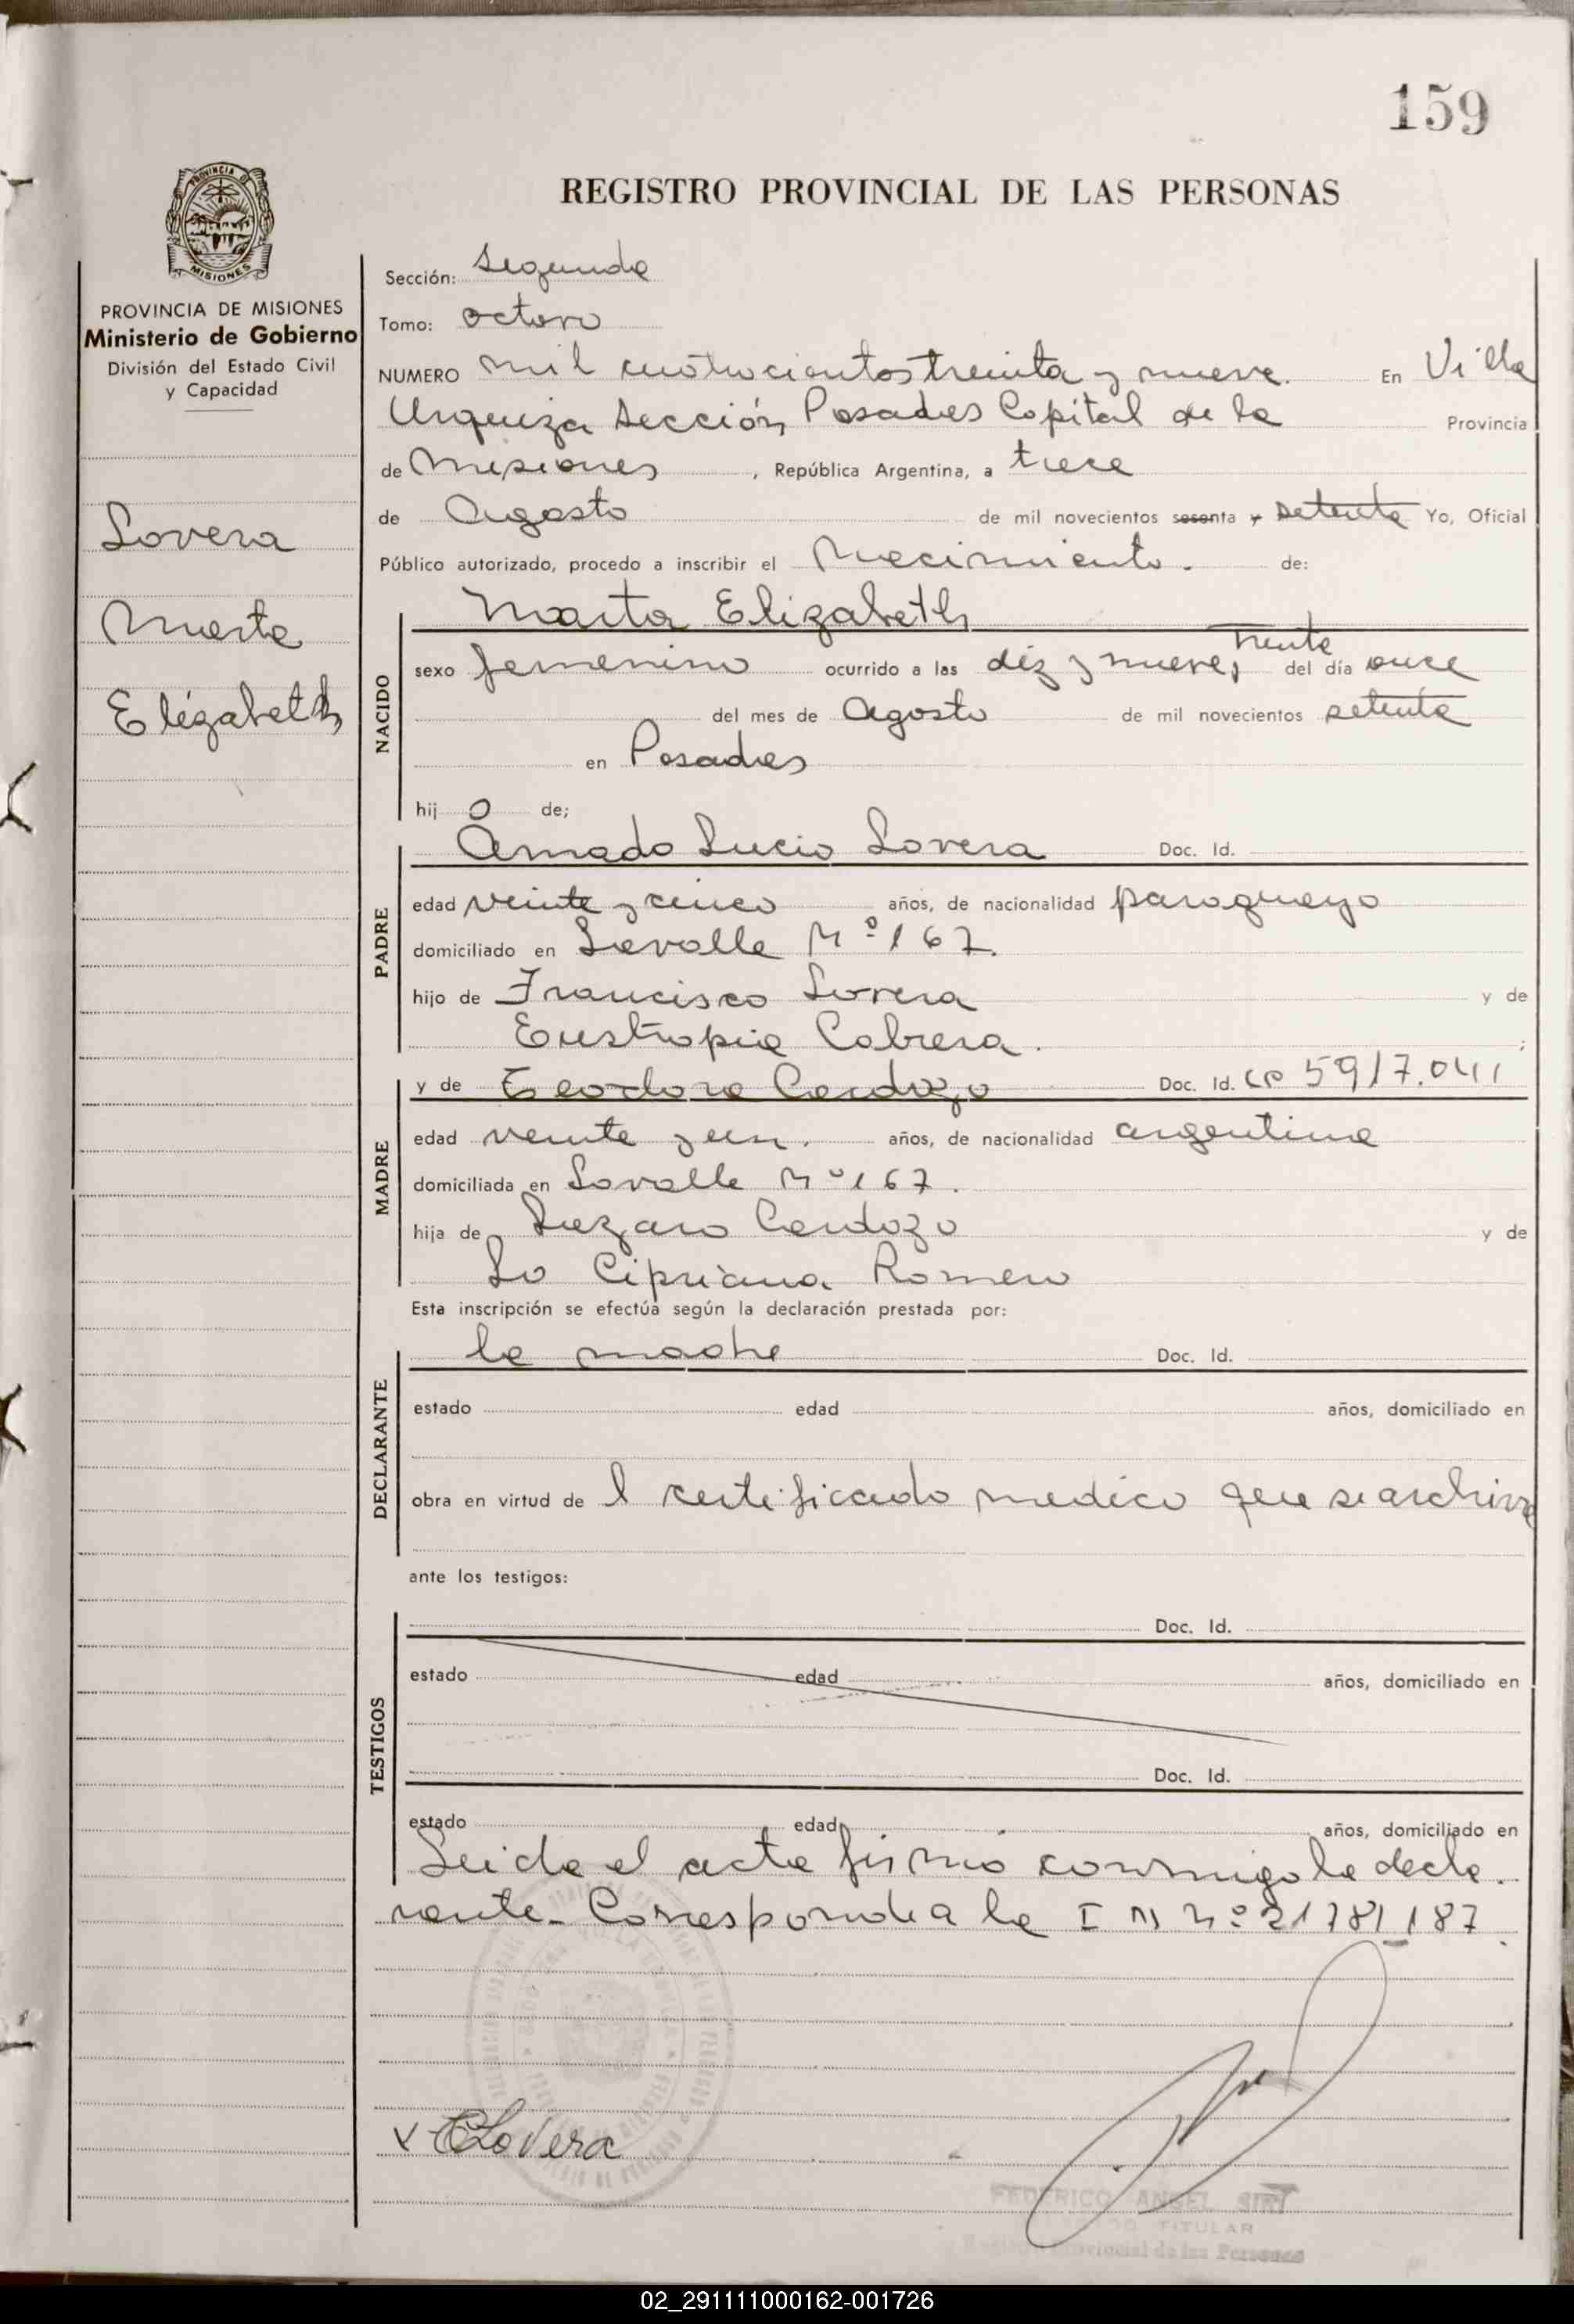 159
REGISTRO PROVINCIAL DE LAS PERSONAS
PROVINCIA DE MISIONES
PROVINCIA DE MISIONES
Ministerio de Gobierno
División del Estado Civil
y Capacidad
Lovera
Marta
Elizabeth
Sección: Segunda
Tomo: octavo
NUMERO mil cuatrocientos treinta y nueve. En Villa
Urquiza Sección Posadas Capital de la Provincia
de Misiones, República Argentina, a trece
de Agosto de mil novecientos sesenta y setenta Yo, Oficial
Público autorizado, procedo a inscribir el Nacimiento. de:
NACIDO
Marta Elizabeth
treinta
sexo femenino ocurrido a las diez y nueve, del día once
del mes de Agosto de mil novecientos setenta
en Posadas
hij o de;
PADRE
Amado Lucio Lovera Doc. Id.
edad veinte y cinco años, de nacionalidad paraguayo
domiciliado en Lavalle Nº 167.
hijo de Francisco Lovera y de
Eustropia Cabrera. ;
MADRE
y de Teodora Cardozo Doc. Id. CP 5917.041
edad veinte y un. años, de nacionalidad argentina
domiciliada en Lavalle Nº 167.
hija de Lazaro Cardozo y de
Cipriana Romero
Esta inscripción se efectúa según la declaración prestada por:
DECLARANTE
la madre Doc. Id.
estado edad años, domiciliado en
obra en virtud de l certificado medico que se archiva
ante los testigos:
TESTIGOS
Doc. Id.
estado edad años, domiciliado en
Doc. Id.
estado edad años, domiciliado en
Leida el acta firmó conmigo la decla.
rante. Corresponde a la I M Nº 21781187.
Lovera
FEDERICO ANGEL
TITULAR
Registro Provincial de las Personas
02_291111000162-001726